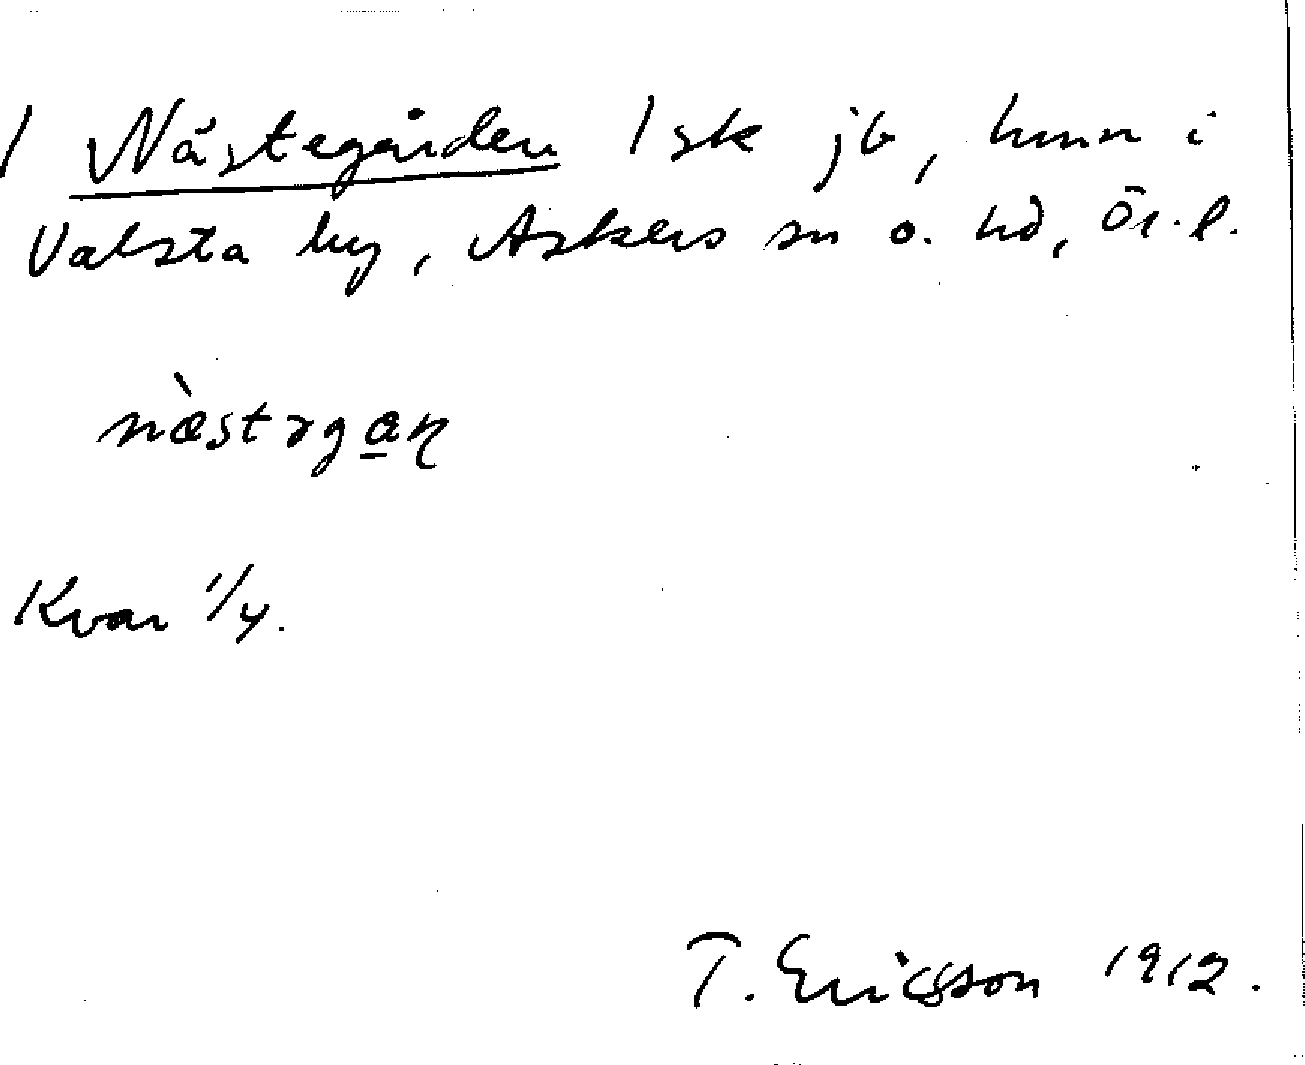 / Nästegården 1 sk jb, hmn i
Valsta by, Askers sn o. hd, Ör. l.
næ̀stəga̲ɳ
Kvar 1/4.
T. Ericsson 1912.